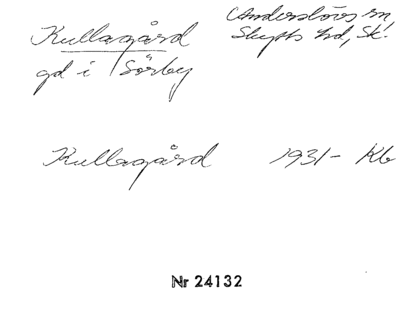 Kullagård
gd i Sörby
Anderslövs sn
Skytts hd, Sk.
Kullagård 1931- Kb
Nr 24132